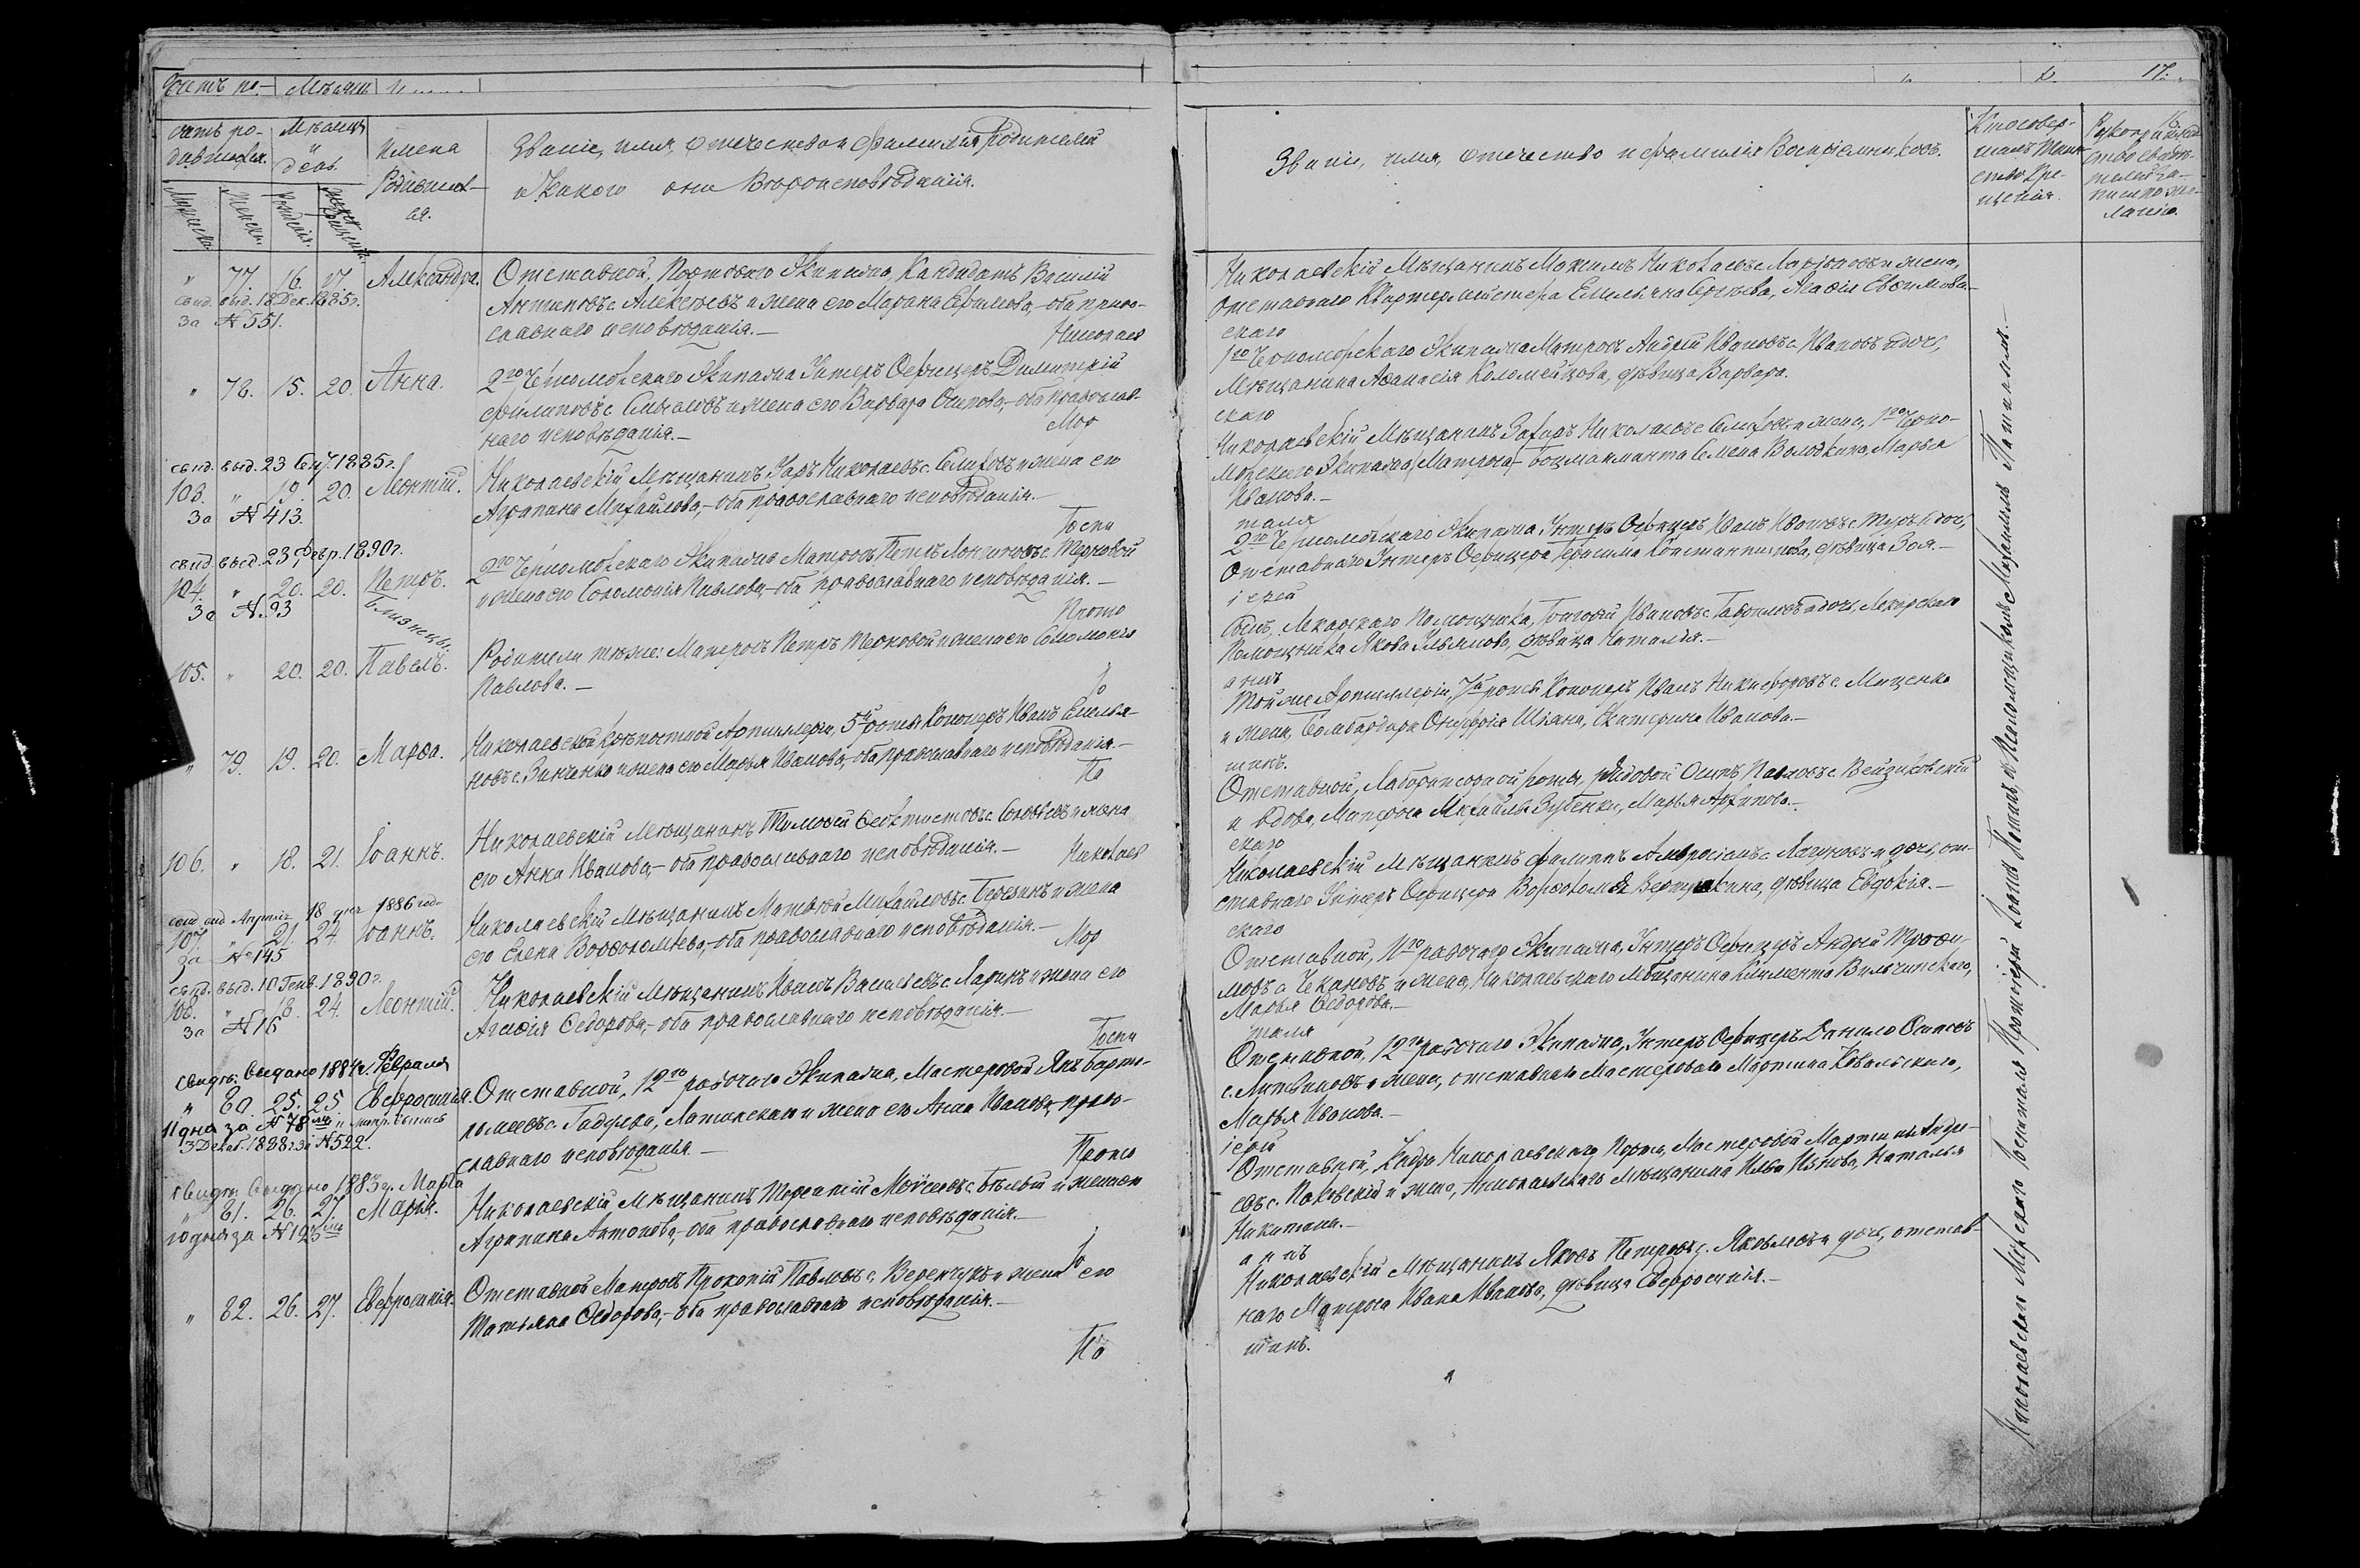 17.
Счетъ ро-
дившихся.
Мѣсяцъ
и
день.
Имена
Родивших-
ся.
Званіе, имя, отчество и фамилія Родителей
и какого они Вѣроисповѣданія.
Мужска.
Женска.
Рожденія.
Крещенія.
" 77. 16. 17. Александра.
свид. выд. 18 Дек. 1885 г.
За № 551.
Отставной, Портоваго Экипажа, Кандидатъ Василій
Антиповъ с. Алексѣевъ и жена его Марѳа Ефимова,- оба право-
славнаго исповѣданія.-
Николаев
" 78. 15. 20. Анна.
2го Черноморскаго Экипажа Унтеръ Офицеръ Димитрій
Филиповъ с. и жена его Варвара Осипова,- оба православ-
наго исповѣданія.-
Мор
свид. выд. 23 1885 г.
103. " 19. 20. Леонтій.
За № 413.
Николаевскій Мѣщанинъ Николаевъ с. Селиховъ и жена его
Агрипина Михайлова,- оба православнаго исповѣданія.-
Госпи
свид. выд. 23 Февр. 1890 г.
104. " 20. 20. Петръ.
За № 93
Близнецы.
2го Черноморскаго Экипажа Матросъ Петръ с. Терновой
и жена его Соломонія Павлова,- оба православнаго исповѣданія.-
Прото
105. " 20. 20. Павелъ.
Родители тѣже: Матросъ Петръ Терновой и жена его Соломонія
Павлова.-
Іо
" 79. 19. 20. Марѳа.
Николаевской Крѣпостной Артиллеріи, 5й роты Канониръ Иванъ Емелья-
новъ с. Зинченко и жена его Марья Иванова,- оба православнаго исповѣданія.-
По
106. " 18. 21. Іоаннъ.
Николаевскій Мѣщанинъ Тимоѳей Ѳеоктистовъ с. Соловьевъ и жена
его Анна Иванова,- оба православнаго исповѣданія.-
Николаев
свид. выд. Апрѣля 18 дня 1886 год.
107. " 21. 24. Іоаннъ.
За № 145
Николаевскій Мѣщанинъ Матвѣй Михайловъ с. и жена
его Елена Варѳоломѣева,- оба православнаго исповѣданія.-
Мор
свид. выд. 10 Генв. 1890 г.
108. " 18. 24. Леонтій.
За № 16
Николаевскій Мѣщанинъ Иванъ Васильевъ с. Ларинъ и жена его
Агаѳія Ѳедорова,- оба православнаго исповѣданія.-
Госпи
Свидѣт. выдано 1884 г. Февраля
" 80. 25. 25. Евфросинія.
11 дня за № 78
3 Декаб. 1888 г. за № 522.
Отставной, 12го рабочаго Экипажа, Мастеровой Янъ Барто-
ломеевъ с. Латинскаго и жена его Анна Иванова, право-
славнаго исповѣданія.-
Прото
Свидѣт. выдано 1883 г. Марта
" 81. 26. 27. Марія.
10 дня за № 195
Николаевскій, Мѣщанинъ Терентій Моисеевъ с. Бѣлый и жена его
Агрипина Антонова,- оба православнаго исповѣданія.-
Іо
" 82. 26. 27. Евфросинія.
Отставной Матросъ Прокопій Павловъ с. Веренчукъ и жена его
Татьяна Ѳедорова,- оба православнаго исповѣданія.-
По
Званіе, имя, отчество и фамилія Воспріемниковъ.
Кто совер-
шалъ Таин-
ство Кре-
щенія.
Рукоприклад-
ство свидѣ-
телей за-
писи по же-
ланію.
Николаевскій Мѣщанинъ Максимъ Николаевъ с. и жена,
отставнаго Квартермистера Емельяна Сергѣева, Агаѳія Евфимова.-
скаго
1го Черноморскаго Экипажа Матросъ Андрей Ивановъ с. Ивановъ и дочь,
Мѣщанина Аѳанасія Коломейцова, дѣвица Варвара.
скаго
Николаевскій Мѣщанинъ Захаръ Николаевъ с. Селиховъ и жена, 1го Черно-
морскаго Экипажа (Матроса)- Боцманмата Семена Володкина, Марья
Иванова.-
таля
2го Черноморскаго Экипажа, Унтеръ Офицеръ Иванъ Ивановъ с. и дочь,
Отставнаго Унтеръ Офицера Герасима Константинова, дѣвица Зоя.-
іерей
Сынъ, Лекарскаго Помощника, Григорій Ивановъ с. Гавриловъ и дочь, Лекарскаго
Помощника Якова Ульянова, дѣвица Наталья.-
аннъ
Той же Артиллеріи, 7й роты Канониръ Иванъ Никифоровъ с. Мищенко
и жена, Бомбардира Онуфрія Шіяна, Екатерина Иванова.-
тинъ.
Отставной, Лабораторной роты, рядовой Осипъ Павловъ с. Вейзиковскій
и вдова, Матроса Михайла Зубенки, Марья Архипова.-
скаго
Николаевскій Мѣщанинъ Филиппъ Амвросіевъ с. Лагуновъ и дочь, от-
ставнаго Унтеръ Офицера Варѳоломея Вертушкина, дѣвица Евдокія.-
скаго
Отставной, рабочаго Экипажа, Унтеръ Офицеръ Андрей Трофи-
мовъ с. Чекановъ и жена, Николаевскаго Мѣщанина Климента Вильчинскаго,
Марья Ѳедорова.-
таля
Отставной, 12го рабочаго Экипажа, Унтеръ Офицеръ Данило Осиповъ
с. Литвиновъ и жена, отставнаго Мастероваго Мартина Ковальскаго,
Марья Иванова.-
іерей
Отставной, Кадра Николаевскаго Порта, Мастеровой Мартинъ Андре-
евъ с. и жена, Николаевскаго Мѣщанина Наталья
Никитина.-
аннъ
Николаевскій Мѣщанинъ Яковъ Петровъ с. Яковлевъ и дочь, отстав-
наго Матроса Ивана Иванова, дѣвица Евфросинія.-
тинъ.
Николаевскаго Морскаго Госпиталя Протоіерей Іоаннъ съ Псаломщикомъ Михаиломъ